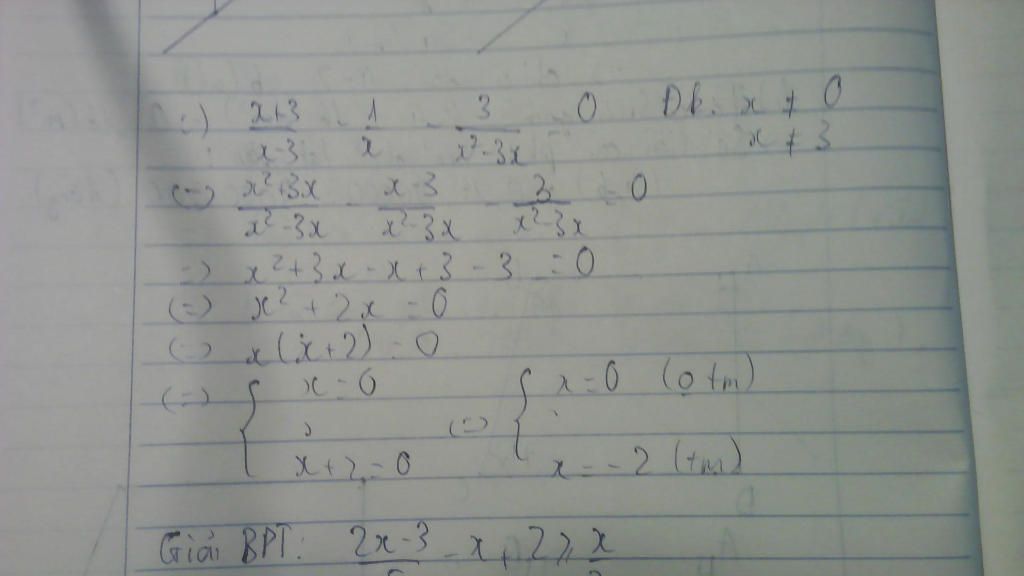 =) (x+3)/(x-3) - 1/x - 3/(x²-3x) = 0 Đk: x ≠ 0
x ≠ 3
(=) (x²+3x)/(x²-3x) - (x-3)/(x²-3x) - 3/(x²-3x) = 0
=) x²+3x-x+3-3 = 0
(=) x² + 2x = 0
(=) x(x+2) = 0
(=) { x = 0 (=) { x = 0 (o tm)
x+2 = 0 x = -2 (tm)
Giải BPT: 2x-3 - x + 2 ≥ x